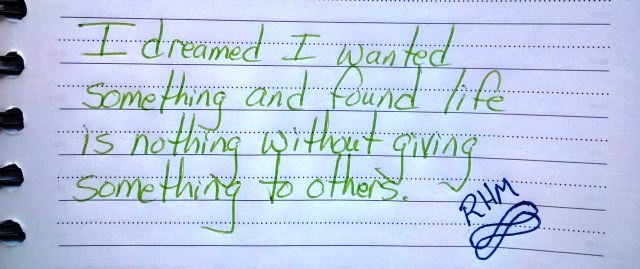 I dreamed I wanted
something and found life
is nothing without giving
something to others.
RHM